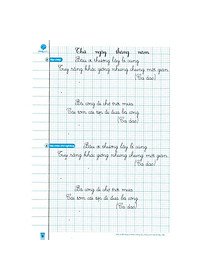 Thứ ngày tháng năm
Bầu ơi thương lấy bí cùng
Tuy rằng khác giống nhưng chung một giàn.
(Ca dao)
Bà còng đi chợ trời mưa
Cái tôm cái tép đi đưa bà còng
(Ca dao)
Bầu ơi thương lấy bí cùng
Tuy rằng khác giống nhưng chung một giàn.
(Ca dao)
Bà còng đi chợ trời mưa
Cái tôm cái tép đi đưa bà còng
(Ca dao)